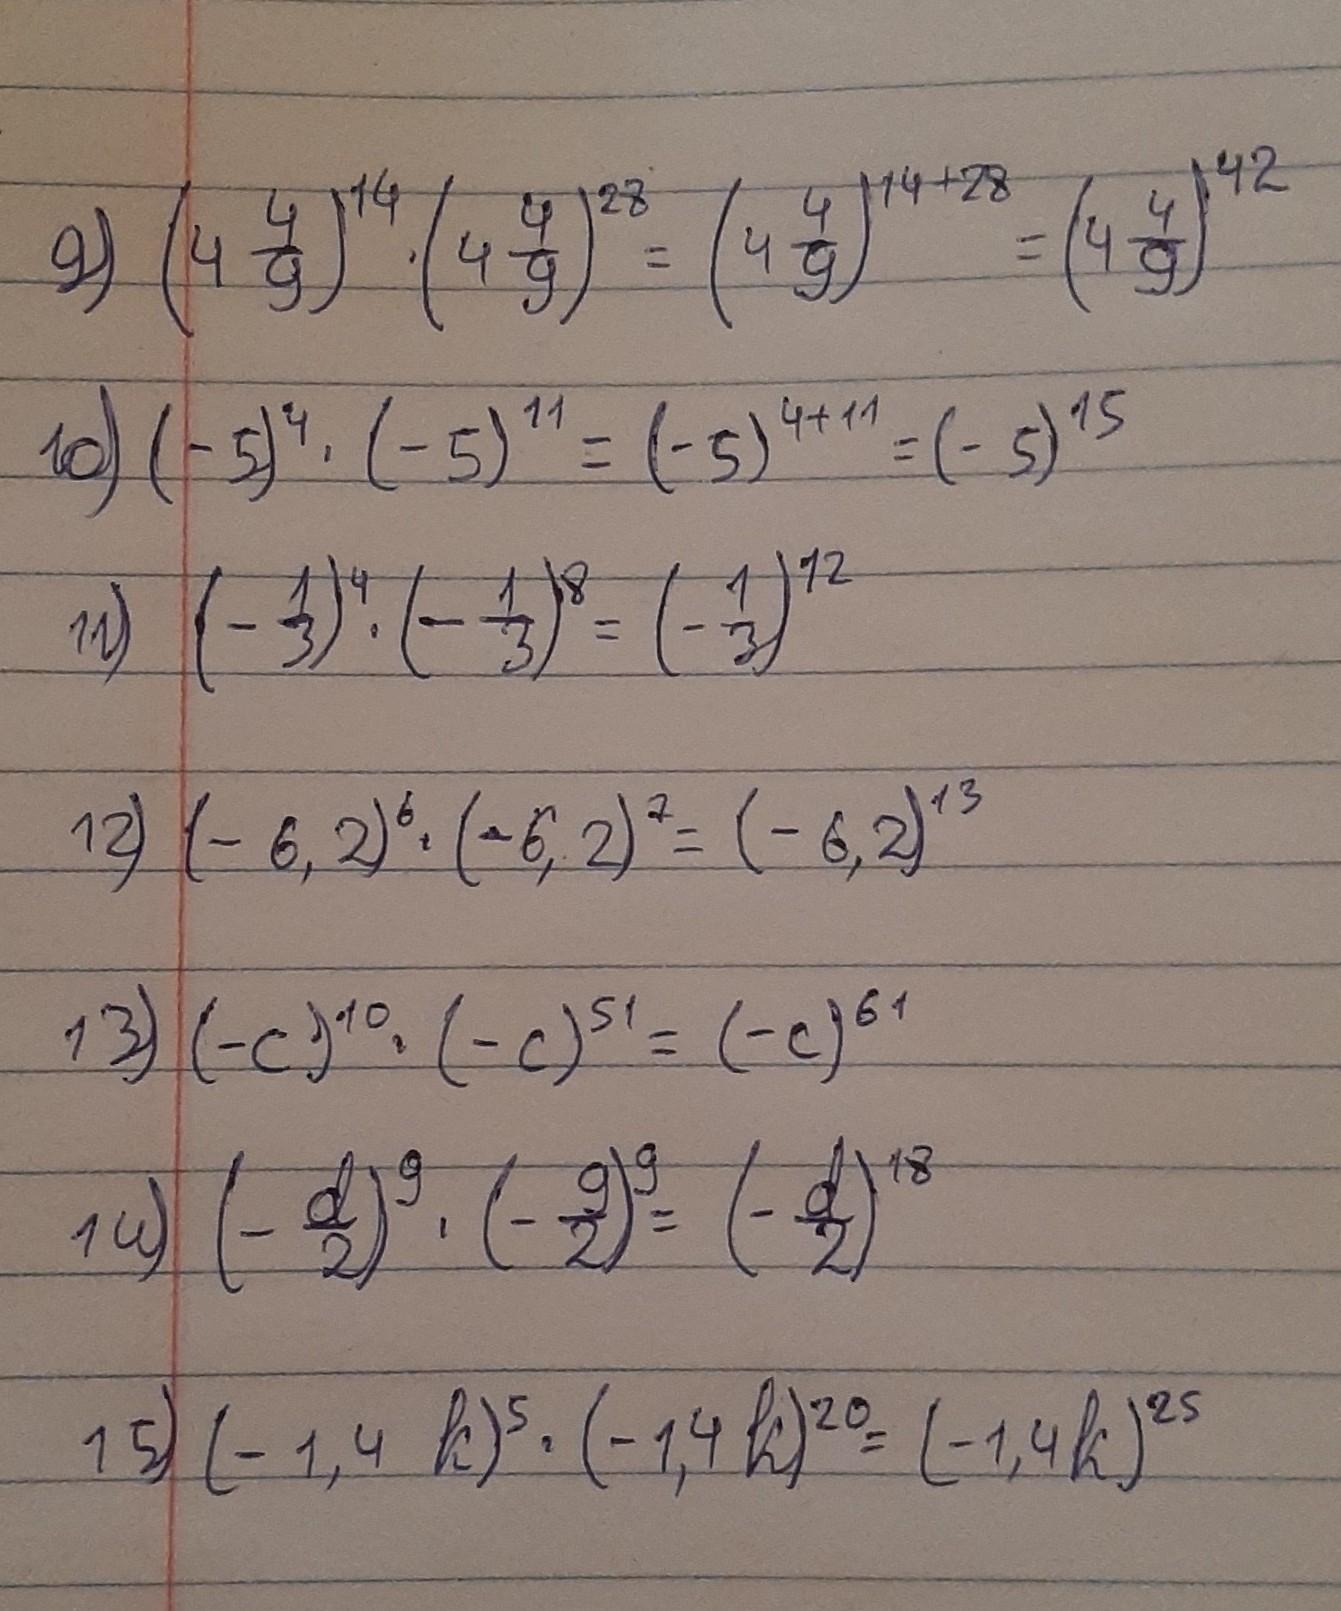 9) (4 4/9)^14 · (4 4/9)^28 = (4 4/9)^14+28 = (4 4/9)^42
10) (-5)^4 · (-5)^11 = (-5)^4+11 = (-5)^15
11) (-1/3)^4 · (-1/3)^8 = (-1/3)^12
12) (-6,2)^6 · (-6,2)^7 = (-6,2)^13
13) (-c)^10 · (-c)^51 = (-c)^61
14) (-d/2)^9 · (-9/2)^9 = (-d/2)^18
15) (-1,4 k)^5 · (-1,4k)^20 = (-1,4k)^25